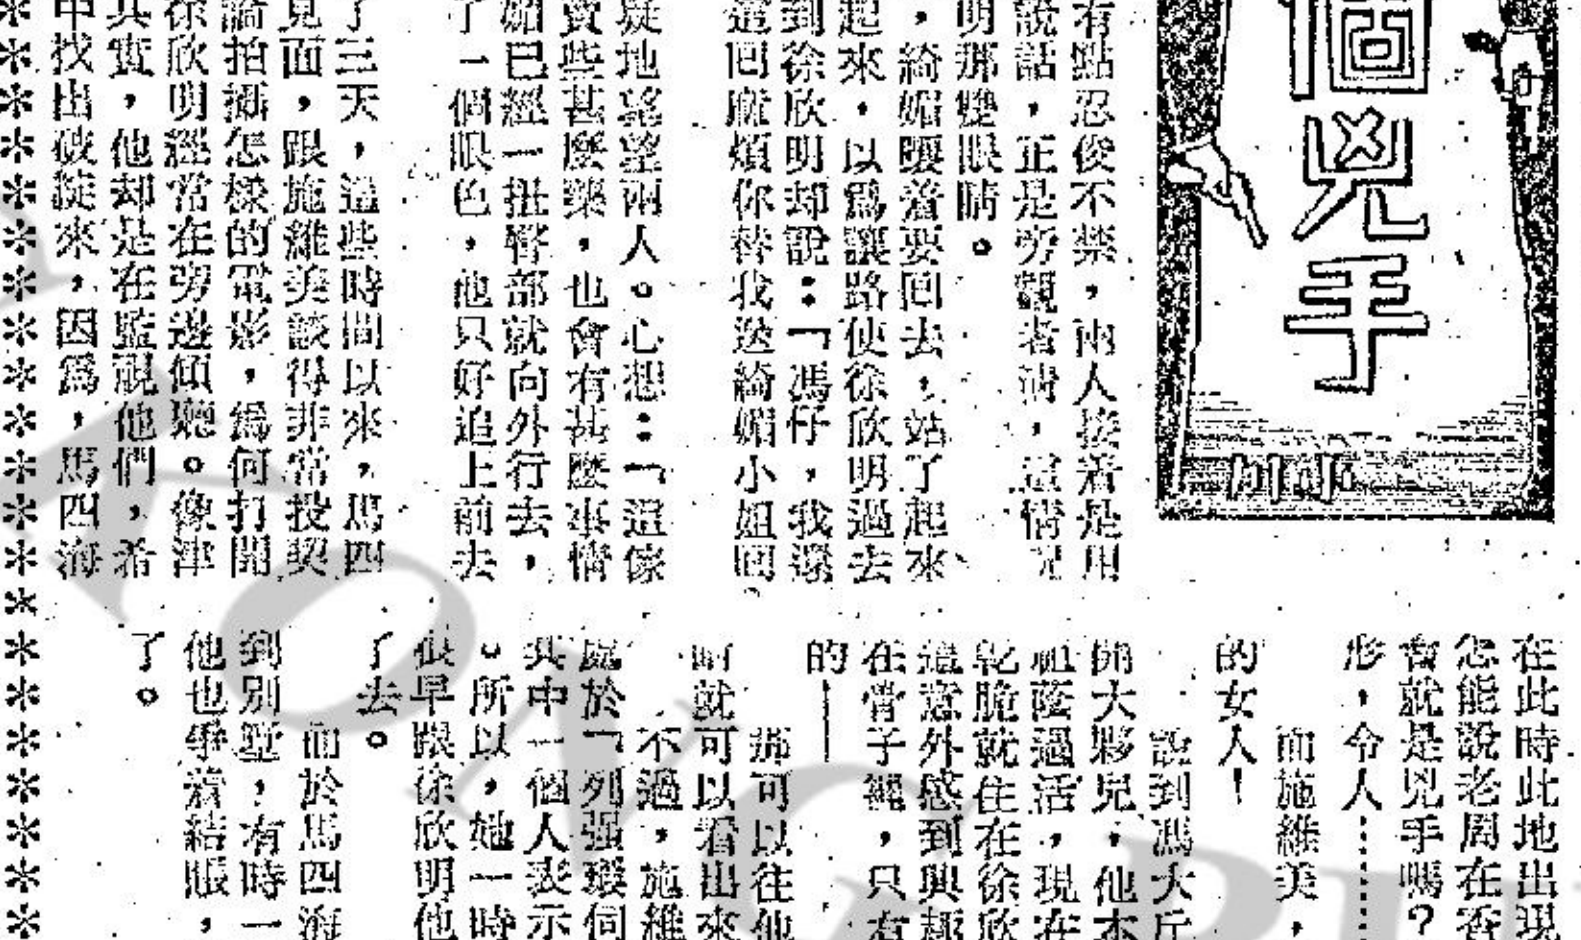 個兇手
有點忍俊不禁，兩人接着是用
說話，正是旁觀者淸，這情況
明那雙眼睛。
，綺媚嚷着要回去，站了起來
起來，以爲讓路使徐欣明過去
到徐欣明却說：「馮仔，我還
還回麻煩你替我送綺媚小姐回
疑地望望兩人。心想：「這傢
賣些甚麼藥，也會有甚麼事情
媚已經一扭臀部就向外行去，
了一個眼色，他只好追上前去
了三天，這些時間以來，馬四
見面，跟施維美談得非常投契
論拍攝怎樣的電影，爲何打開
徐欣明經常在旁邊傾聽。像津
其實，他却是在監視他們，希
中找出破綻來，因爲，馬四海
＊＊＊＊＊＊＊＊＊＊＊＊＊＊＊＊＊＊＊＊
在此時此地出現
怎能說老周在香
會就是兇手嗎？
形，令人……
而施維美，
的女人！
說到馮大斤
大夥兒，他本
祖蔭過活，現在
乾脆就住在徐欣
意外感到興趣
在骨子裡，只有
的——
那可以往他
就可以看出來
不過，施維
處於「列强環伺
其中一個人表示
。所以，她一時
很早跟徐欣明他
了去。
而於馬四海
到別墅，有時一
他也爭着結賬，
了。